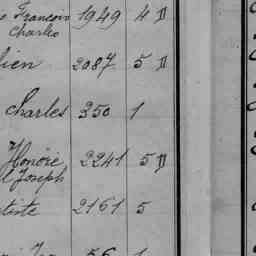 François 1949 4 D
Charles
lien 2087 5 D
Charles 350 1
Honoré 2241 5 D
Joseph
tiste 2161 5
56 1